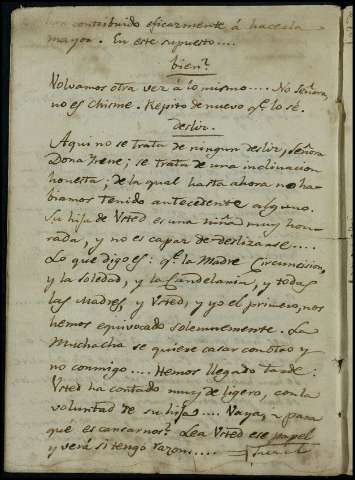 han contribuido eficazmente á hacerla
mayor. En este supuesto....
bien?
Volvamos otra vez á lo mismo.... No Señora,
no es chisme. Repito de nuevo qe. lo sé.
desliz.
Aqui no se trata de ningun desliz, Señora
Doña Irene; se trata de una inclinacion
honesta; de la qual hasta ahora no ha-
biamos tenido antecedente alguno.
Su hija de Vsted es una niña muy hon-
rada, y no es capaz de deslizarse....
Lo que digo es: qe. la Madre Circuncision,
y la Soledad, y la Candelaria, y todas
las Madres, y Vsted, y yo el primero, nos
hemos equivocado solemnemente. La
Muchacha se quiere casar con otro y
no conmigo.... Hemos llegado tarde:
Vsted ha contado muy de ligero, con la
voluntad de su hija.... Vaya, ¿ para
qué es cansarnos? Lea Vsted ese papel
y verá si tengo razon....